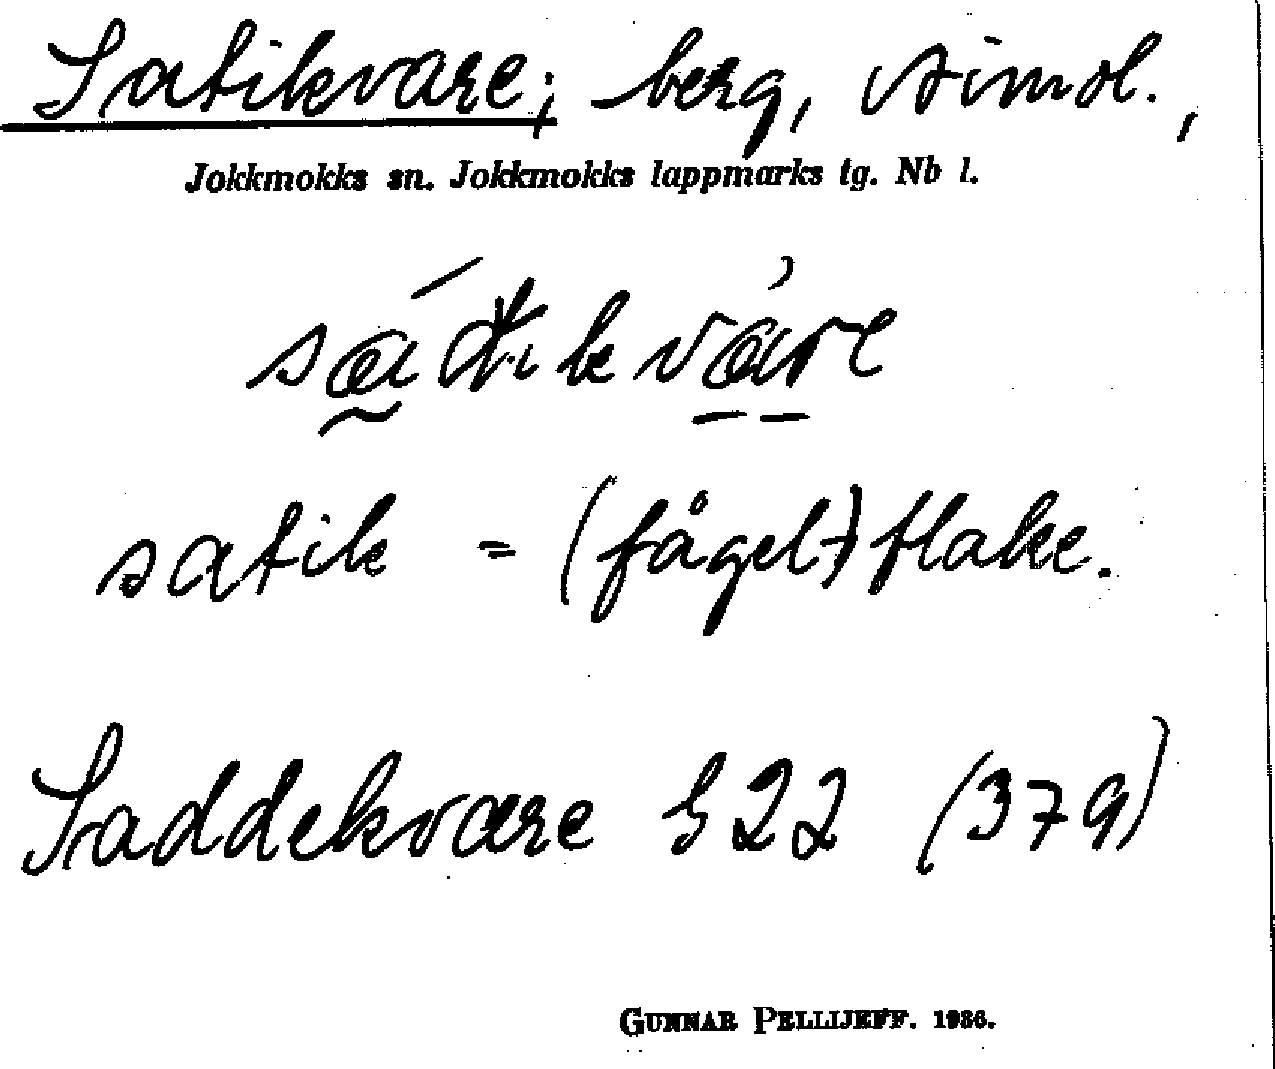 Satikvare; berg,
Jokkmokks sn. Jokkmokks lappmarks tg. Nb l.
satik = (fågel-)flake.
Saddekvare § 22 (379)
GUNNAR PELLIJEFF. 1936.